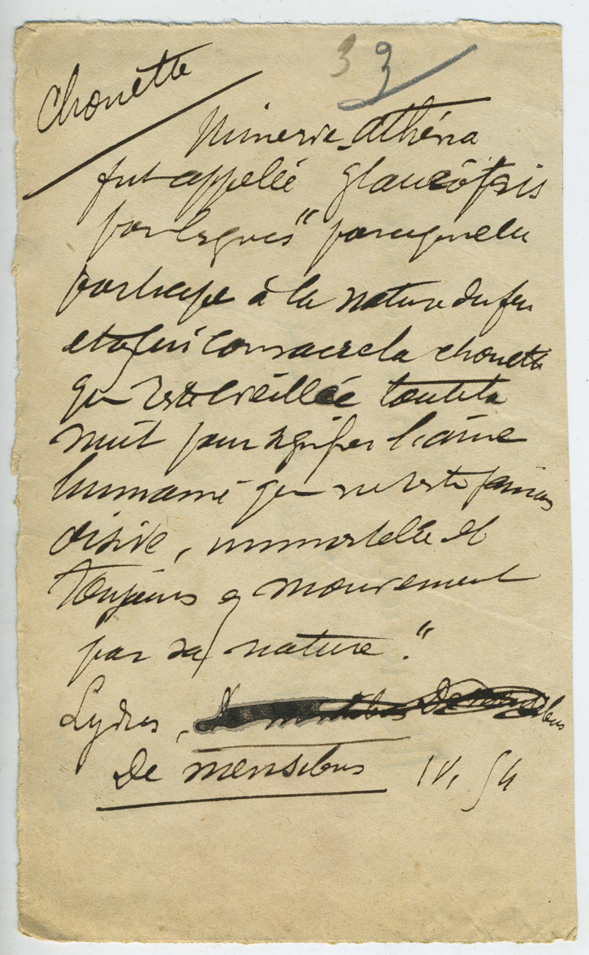 33
Chouette
Minerve Athéna
fut appellée glaucôpis
par les grecs "parcequ'elle
participe à la nature du feu
et on lui consacre la chouette
qui reste éveillée toute la
nuit pour signifier l'âme
humaine qui ne reste jamais
oisive, immortelle et
toujours en mouvement
par sa nature."
Lydus,
De mensibus IV, 54